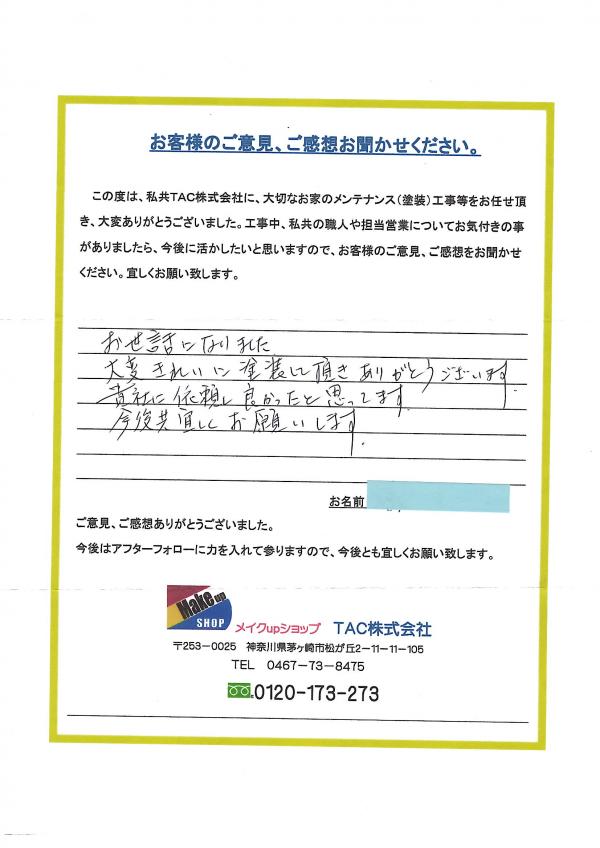 お客様のご意見、ご感想お聞かせください。
この度は、私共TAC株式会社に、大切なお家のメンテナンス(塗装)工事等をお任せ頂
き、大変ありがとうございました。工事中、私共の職人や担当営業についてお気付きの事
がありましたら、今後に活かしたいと思いますので、お客様のご意見、ご感想をお聞かせ
ください。宜しくお願い致します。
お世話になりました
大変きれいに塗装して頂きありがとうございます。
貴社に依頼し良かったと思ってます。
今後共宜しくお願いします。
お名前
ご意見、ご感想ありがとうございました。
今後はアフターフォローに力を入れて参りますので、今後とも宜しくお願い致します。
Make up
SHOP
メイクupショップ TAC株式会社
〒253-0025 神奈川県茅ヶ崎市松が丘2-11-11-105
TEL 0467-73-8475
0120-173-273